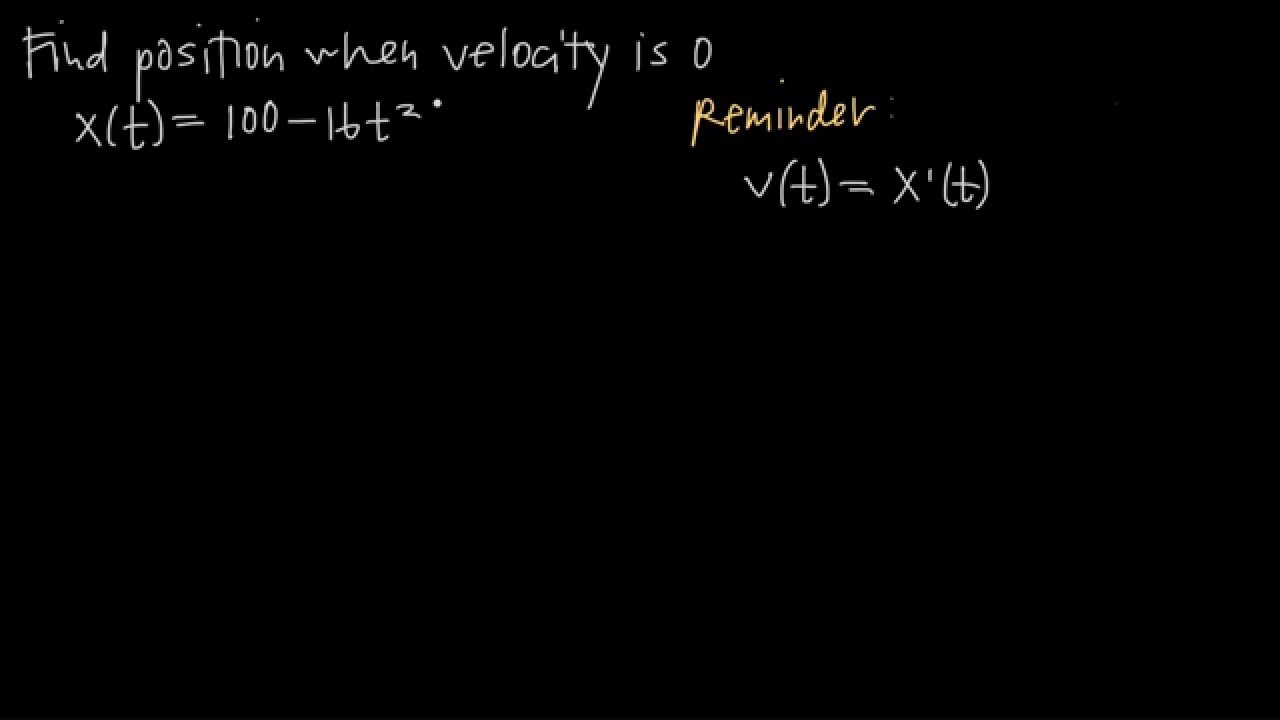 Find position when velocity is 0
x(t) = 100 - 16t²
Reminder:
v(t) = x'(t)